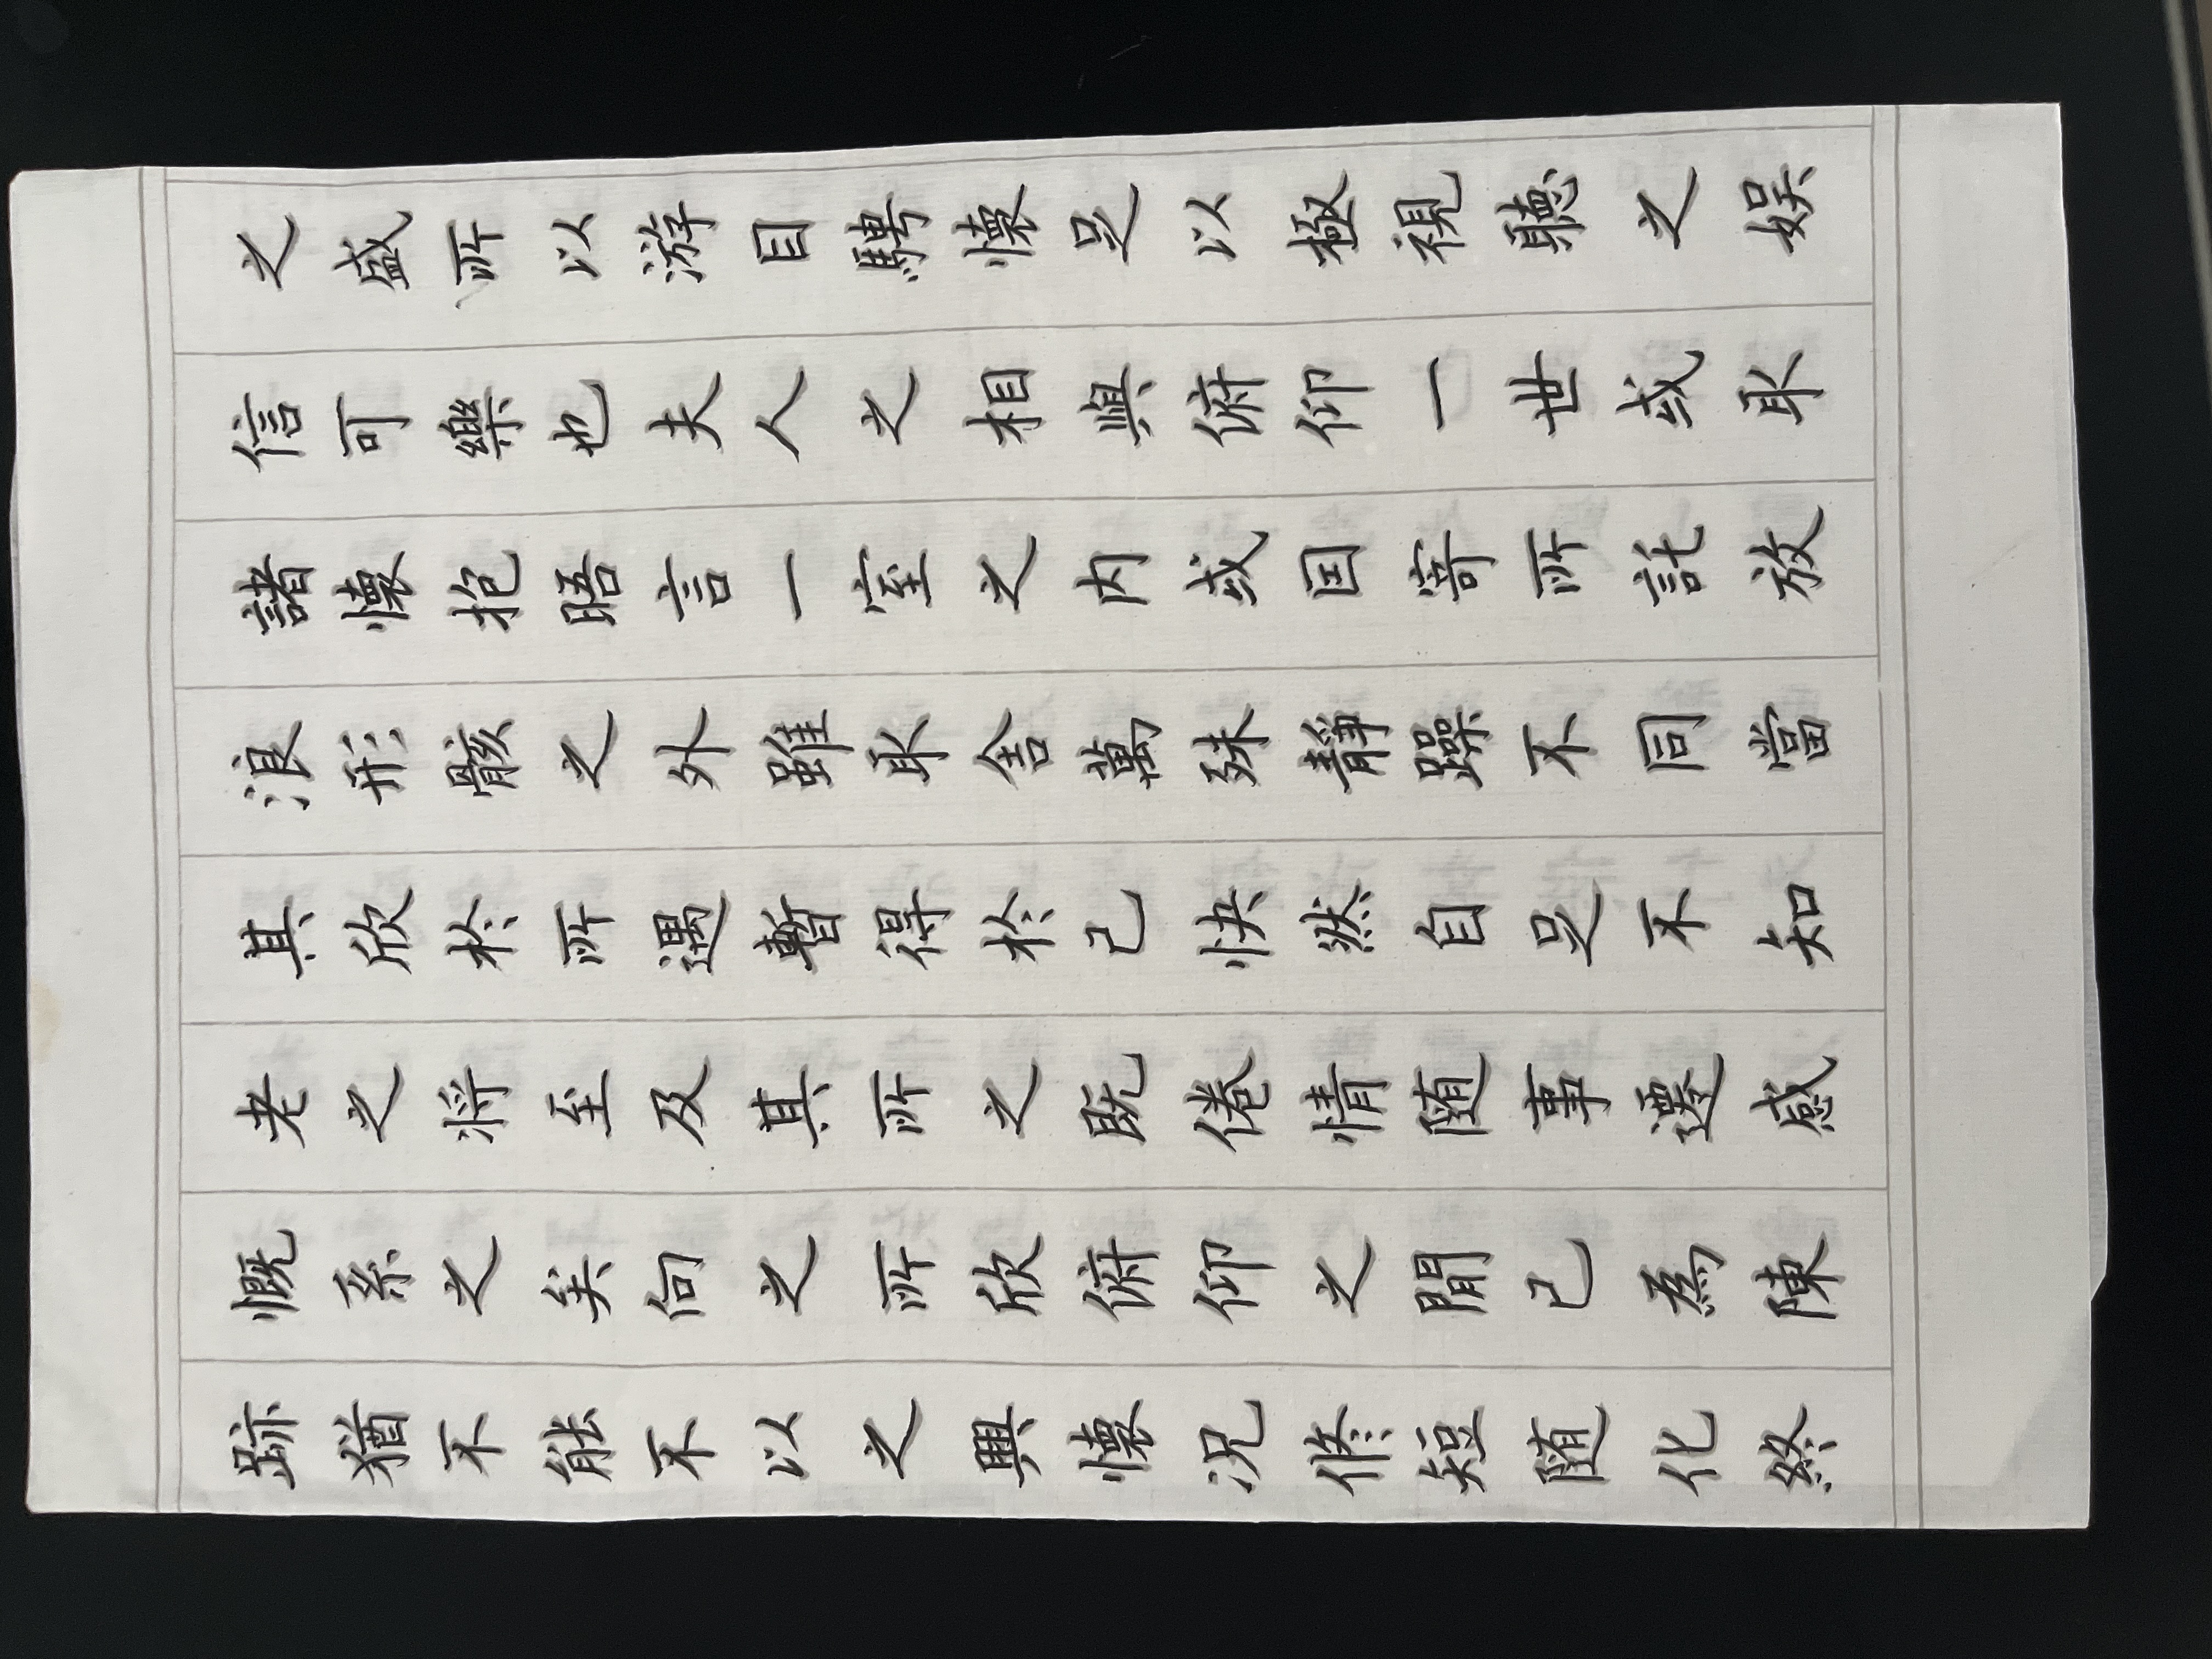 之盛所以游目騁懷足以極視聽之娛
信可樂也夫人之相與俯仰一世或取
諸懷抱晤言一室之内或因寄所託放
浪形骸之外雖取舍萬殊靜躁不同當
其欣於所遇暫得於己快然自足不知
老之将至及其所之既倦情随事遷感
慨系之矣向之所欣俯仰之間已為陳
跡猶不能不以之興懷况修短随化終